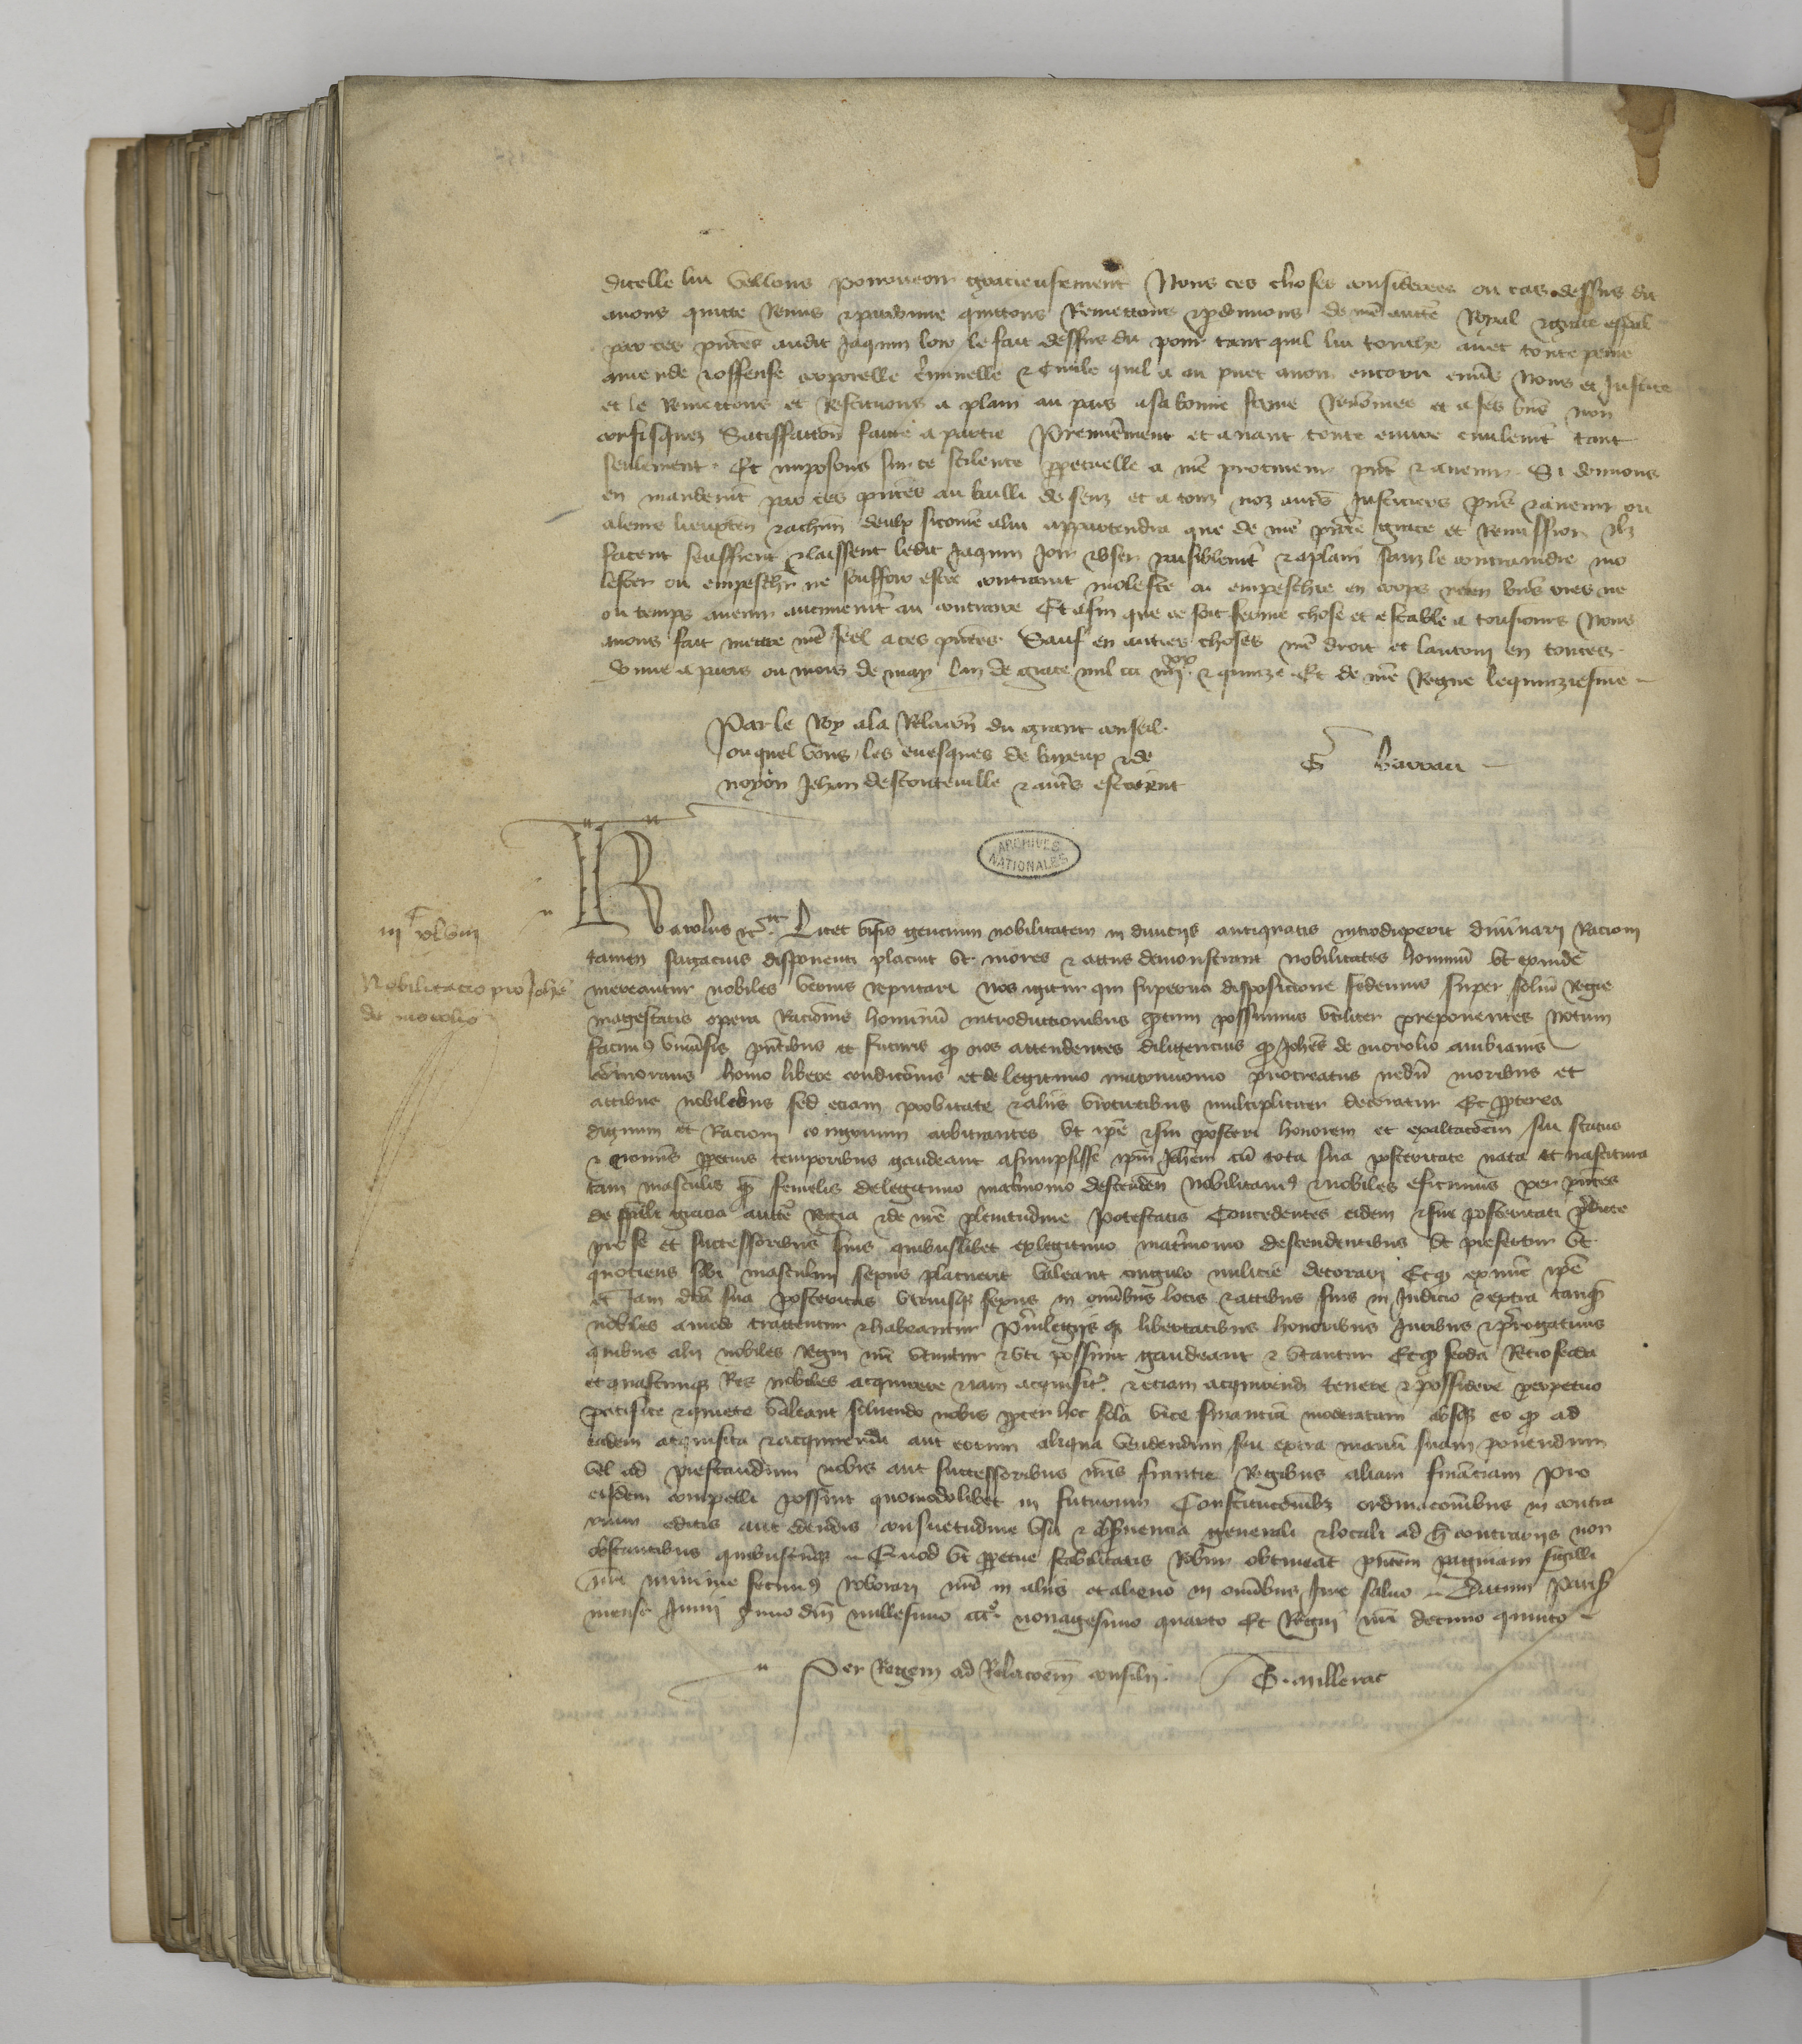 dicelle lui vueillons pourveoir gracieusement Nous ces choses considerees ou cas dessus dit
avons quicte Remis & pardonne quictons Remettons & pdonnons de nre auctē Royal & grace espal
par ces pntes audit Jaquin le fait dessus dit pour tant quil lui touche avec toute peine
amende & offense corporelle criminelle & civile quil a ou puet avoir encouru envers Nous et Justice
et le Remettons et Restituons a plain au pais a sa bonne fame Renommee et a ses biens non
confisquez Satisfaction faicte a partie Premierement et avant toute euvre civilement tant
seulement. Et imposons sur ce scilence ppetuelle a nre procureur pnt & avenir. Si donnons
en mandemt par ces pntes au bailli de Senz et a touz noz autres Justiciers pns & avenir ou
a leurs lieuxten & a chun deulx si come a lui appartendra que de nre pnte grace et Remission Ilz
facent seuffrent & laissent ledit Jaquin Joir & user paisiblemt & a plain sanz le contraindre mo
lester ou empeschr ne souffrir estre contraint moleste ou empeschie en corps ne en biens ores ne
ou temps avenir aucunemt au contraire Et afin que ce soit ferme chose et estable a tousjours Nous
avons fait mettre nre seel a ces pntes. Sauf en autres choses nre droit et lautrui en toutes
Donne a paris ou mois de may lan de grace mil ccc iiii xx & quinze. Et de nre Regne le quinziesme
Par le Roy a la Relacion du grant conseil
ouquel vous, les evesques de bayeux & de
noyon Jehan destouteville & autrs estoient
G barrau
ARCHIVES NATIONALES
Karolus &c. Licet gencium nobilitatem in divicijs antiquatis introduxerit divinarj Racioni
tamen sagacius disponenti placuit ut mores & actus demonstrant nobilitates hominū ut exinde
mereantur nobiles verius reputari nos igitur qui superna disposicione sedemus super soliū Regie
magestatis opera Racionis hominū introductionibus possumus utiliter preponentes Notum
facimus univsis pntibus et futuris q nos attendentes diligencius q Johes de morolio ambianis
comorans homo libere condicionis et de legitimo matrimonio procreatus nedū moribus et
actibus nobilibus sed etiam probitate & aliis virtutibus multipliciter decoratur Et ppterea
dignum et Racioni congruum arbitrantes ut ipe & sui posteri honorem et exaltacoem sui status
& nominis ppetuis temporibus gaudeant assumpsisse ipm Johem cū tota sua posteritate nata et nascitura
tam masculis q femelis de legitimo matrimonio descenden Nobilitamus & nobiles efficimus per pntes
de spali gracia auctē Regia & de nre plenitudine Potestatis Concedentes eidem & sue posteritati pdicte
pro se et successoribus suis quibuslibet ex legitimo matrimonio descendentibus ut prefertur ut
quociens sibi masculini sexus placuerit valeant cingulo milicie decorarj Et q ex nunc ipe
et jam dca sua posteritas utriusq sexus in omibus locis & actibus suis in Judicio & extra tanq
nobiles amodo tractentur & habeantur Privilegijs q libertatibus honoribus Juribus & prerogativis
quibus alii nobiles Regni nri utuntur & uti possunt gaudeant & utantur Et q feoda Retrofeoda
et quascunq Res nobiles acquirere & iam acquisit & etiam acquirend tenere & possidere perpetuo
pacifice & quiete valeant solvendo nobis ppter hoc sola vice financiā moderatam absq eo q ad
eadem acquisita & acquirenda aut eorum aliqua vendendum seu extra manū suam ponendum
vel ad prestandum nobis aut successoribus nris francie Regibus aliam financiam pro
eisdem compelli possint quomodolibet in futurum Constitucōibz ordinacoibus in contra
rium editis aut edendis consuetudine usu & obsvancia generali & locali ad h contrarijs non
obstantibus quibuscunq Quod ut ppetue stabilitatis Robur obtineat pntem paginam sigilli
nri munimine fecimus Roborari nro in aliis et alieno in omibus Jure salvo Datum Paris
mense Junij anno dni millesimo ccc° nonagesimo quarto Et Regni nri decimo quinto
Per Regem ad Relacoem consilii
G. aillerac
Nobilitacio pro Johe
de morolio